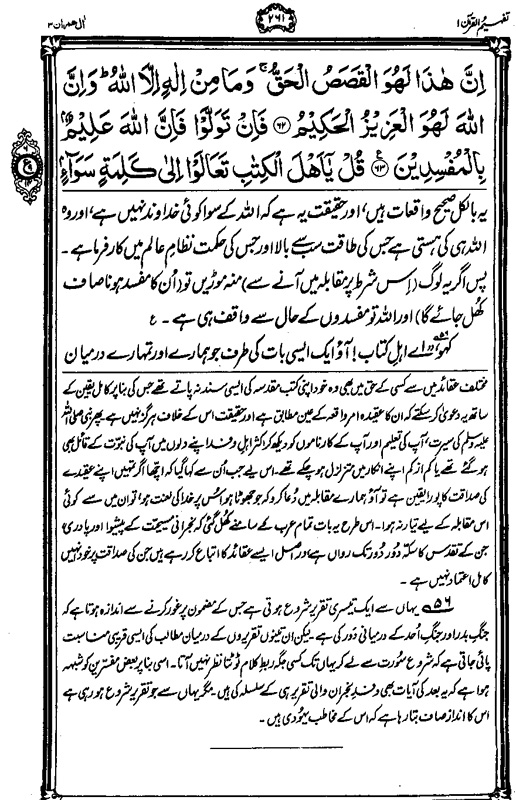 تفہیم القرآن ۱
۲۶۱
اٰل عمران ۳
اِنَّ هٰذَا لَهُوَ الْقَصَصُ الْحَقُّ ۚ وَمَا مِنْ اِلٰهٍ اِلَّا اللّٰهُ ؕ وَاِنَّ
اللّٰهَ لَهُوَ الْعَزِيْزُ الْحَكِيْمُ ﴿۶۲﴾ فَاِنْ تَوَلَّوْا فَاِنَّ اللّٰهَ عَلِيْمٌۢ
بِالْمُفْسِدِيْنَ ﴿۶۳﴾ قُلْ يٰۤاَهْلَ الْكِتٰبِ تَعَالَوْا اِلٰى كَلِمَةٍ سَوَآءٍۭ
یہ بالکل صحیح واقعات ہیں، اور حقیقت یہ ہے کہ اللہ کے سوا کوئی خداوند نہیں ہے، اور وہ
اللہ ہی کی ہستی ہے جس کی طاقت سب سے بالا اور جس کی حکمت نظامِ عالم میں کارفرما ہے۔
پس اگر یہ لوگ (اِس شرط پر مقابلہ میں آنے سے) منہ موڑیں تو (اُن کا مفسد ہونا صاف
کھُل جائے گا) اور اللہ تو مفسدوں کے حال سے واقف ہی ہے۔ ع
کہو،۵۶ اے اہلِ کتاب! آؤ ایک ایسی بات کی طرف جو ہمارے اور تمہارے درمیان
مختلف عقائد میں سے کسی کے حق میں بھی وہ خود اپنی کتب مقدسہ کی ایسی سند نہ پاتے تھے جس کی بنا پر کامل یقین کے
ساتھ یہ دعویٰ کر سکتے کہ ان کا عقیدہ امر واقعہ کے عین مطابق ہے اور حقیقت اس کے خلاف ہرگز نہیں ہے۔ پھر نبی صلی اللہ
علیہ وسلم کی سیرت، آپ کی تعلیم اور آپ کے کارناموں کو دیکھ کر اکثر اہلِ وفد اپنے دلوں میں آپ کی نبوت کے قائل بھی
ہو گئے تھے یا کم از کم اپنے انکار میں متزلزل ہو چکے تھے۔ اس لیے جب اُن سے کہا گیا کہ اچھا اگر تمہیں اپنے عقیدے
کی صداقت کا پورا یقین ہے تو آؤ ہمارے مقابلہ میں دُعا کرو کہ جو جھوٹا ہو اُس پر خدا کی لعنت ہو، تو ان میں سے کوئی
اس مقابلہ کے لیے تیار نہ ہوا۔ اس طرح یہ بات تمام عرب کے سامنے کھُل گئی کہ نجرانی مسیحیت کے پیشوا اور پادری،
جن کے تقدس کا سکّہ دُور دُور تک رواں ہے، دراصل ایسے عقائد کا اتباع کر رہے ہیں جن کی صداقت پر خود انہیں
کامل اعتماد نہیں ہے۔
۵۶ یہاں سے ایک تیسری تقریر شروع ہوتی ہے جس کے مضمون پر غور کرنے سے اندازہ ہوتا ہے کہ
جنگِ بدر اور جنگِ اُحد کے درمیانی دَور کی ہے۔ لیکن ان تینوں تقریروں کے درمیان مطالب کی ایسی قریبی مناسبت
پائی جاتی ہے کہ شروع سُورت سے لے کر یہاں تک کسی جگہ ربطِ کلام ٹوٹتا نظر نہیں آتا۔ اسی بنا پر بعض مفسّرین کو شبہہ
ہوا ہے کہ یہ بعد کی آیات بھی وفدِ نجران والی تقریر ہی کے سلسلہ کی ہیں۔ مگر یہاں سے جو تقریر شروع ہو رہی ہے
اس کا انداز صاف بتا رہا ہے کہ اس کے مخاطب یہودی ہیں۔